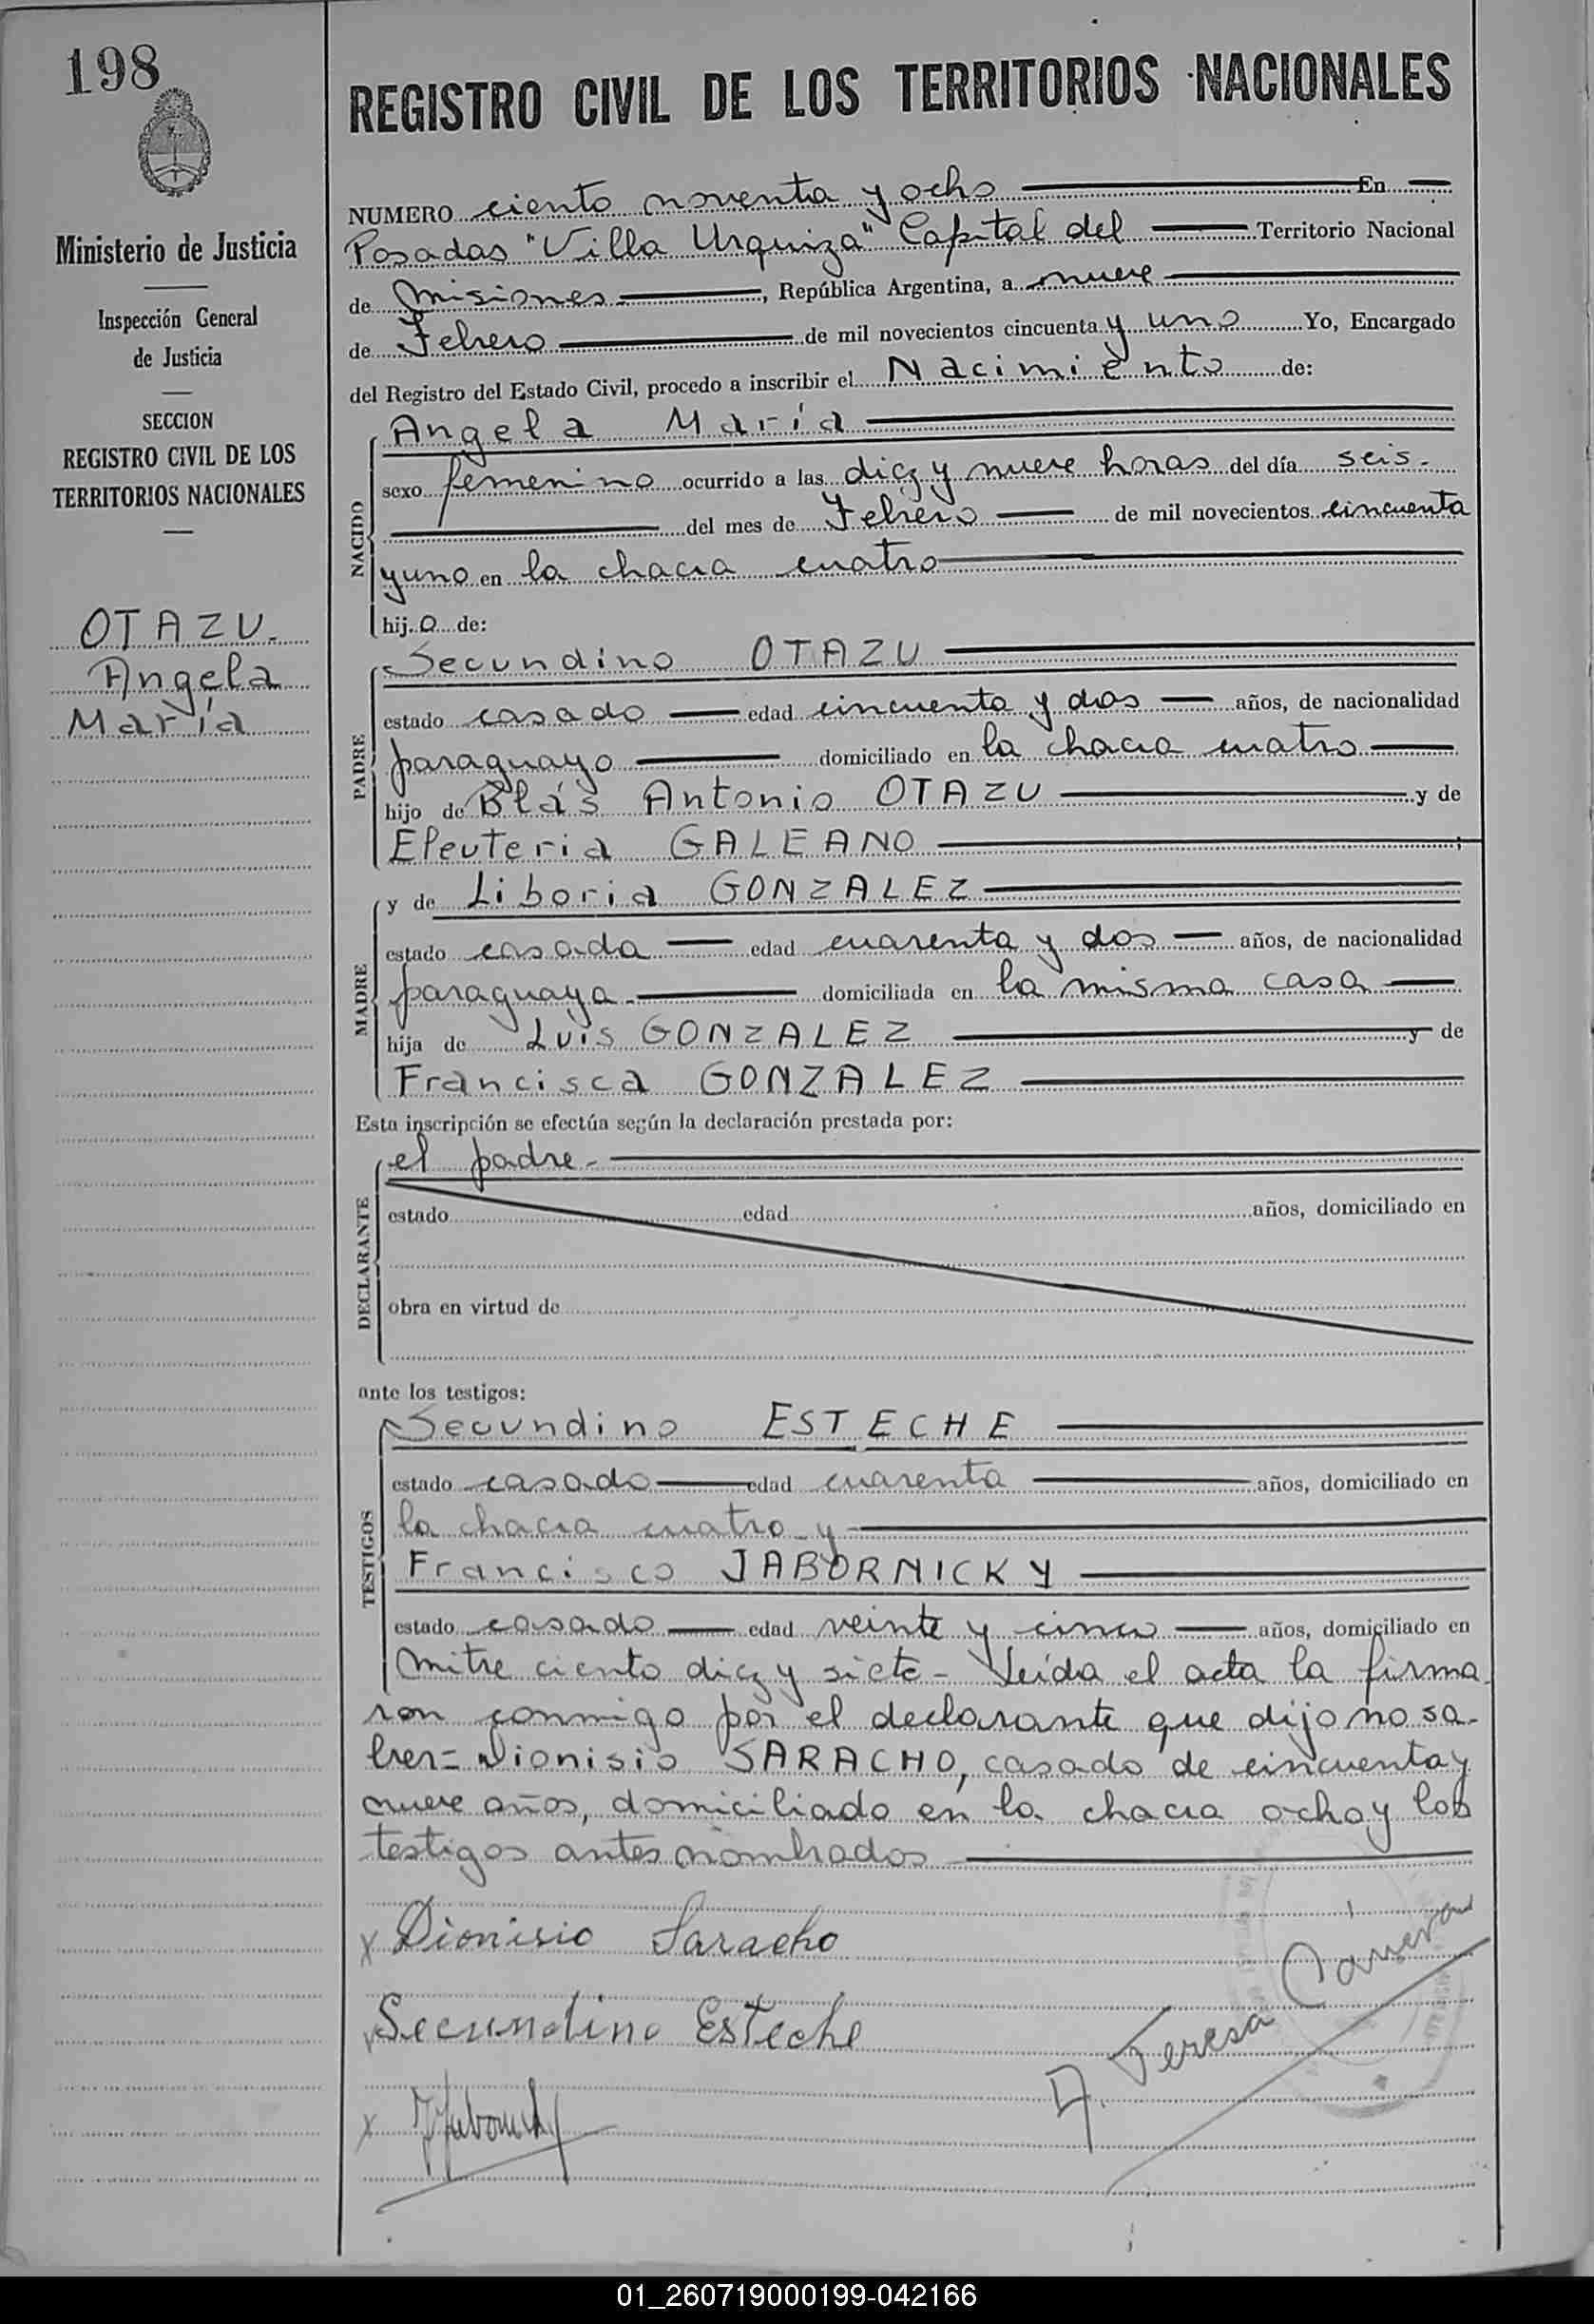 198
Ministerio de Justicia
Inspección General
de Justicia
SECCION
REGISTRO CIVIL DE LOS
TERRITORIOS NACIONALES
OTAZU.
Angela
María
REGISTRO CIVIL DE LOS TERRITORIOS NACIONALES
NUMERO ciento noventa y ocho En
Posadas "Villa Urquiza" Capital del Territorio Nacional
de Misiones, República Argentina, a nueve
de Febrero de mil novecientos cincuenta y uno Yo, Encargado
del Registro del Estado Civil, procedo a inscribir el Nacimiento de:
NACIDO
Angela María
sexo femenino ocurrido a las diez y nueve horas del día seis.
del mes de Febrero de mil novecientos cincuenta
y uno en la chacra cuatro
hija de:
PADRE
Secundino OTAZU
estado casado edad cincuenta y dos años, de nacionalidad
paraguayo domiciliado en la chacra cuatro
hijo de Blás Antonio OTAZU y de
Eleuteria GALEANO ;
MADRE
y de Liboria GONZALEZ
estado casada edad cuarenta y dos años, de nacionalidad
paraguaya domiciliada en la misma casa
hija de Luis GONZALEZ y de
Francisca GONZALEZ
Esta inscripción se efectúa según la declaración prestada por:
DECLARANTE
el padre.
estado edad años, domiciliado en
obra en virtud de
ante los testigos:
TESTIGOS
Secundino ESTECHE
estado casado edad cuarenta años, domiciliado en
la chacra cuatro y
Francisco JABORNICKY
estado casado edad veinte y cinco años, domiciliado en
Mitre ciento diez y siete - Leída el acta la firma
ron conmigo por el declarante que dijo no sa-
ber = Dionisio SARACHO, casado de cincuenta y
nueve años, domiciliado en la chacra ocho y los
testigos antes nombrados
x Dionisio Saracho
Secundino Esteche
x
A. Teresa
01_260719000199-042166